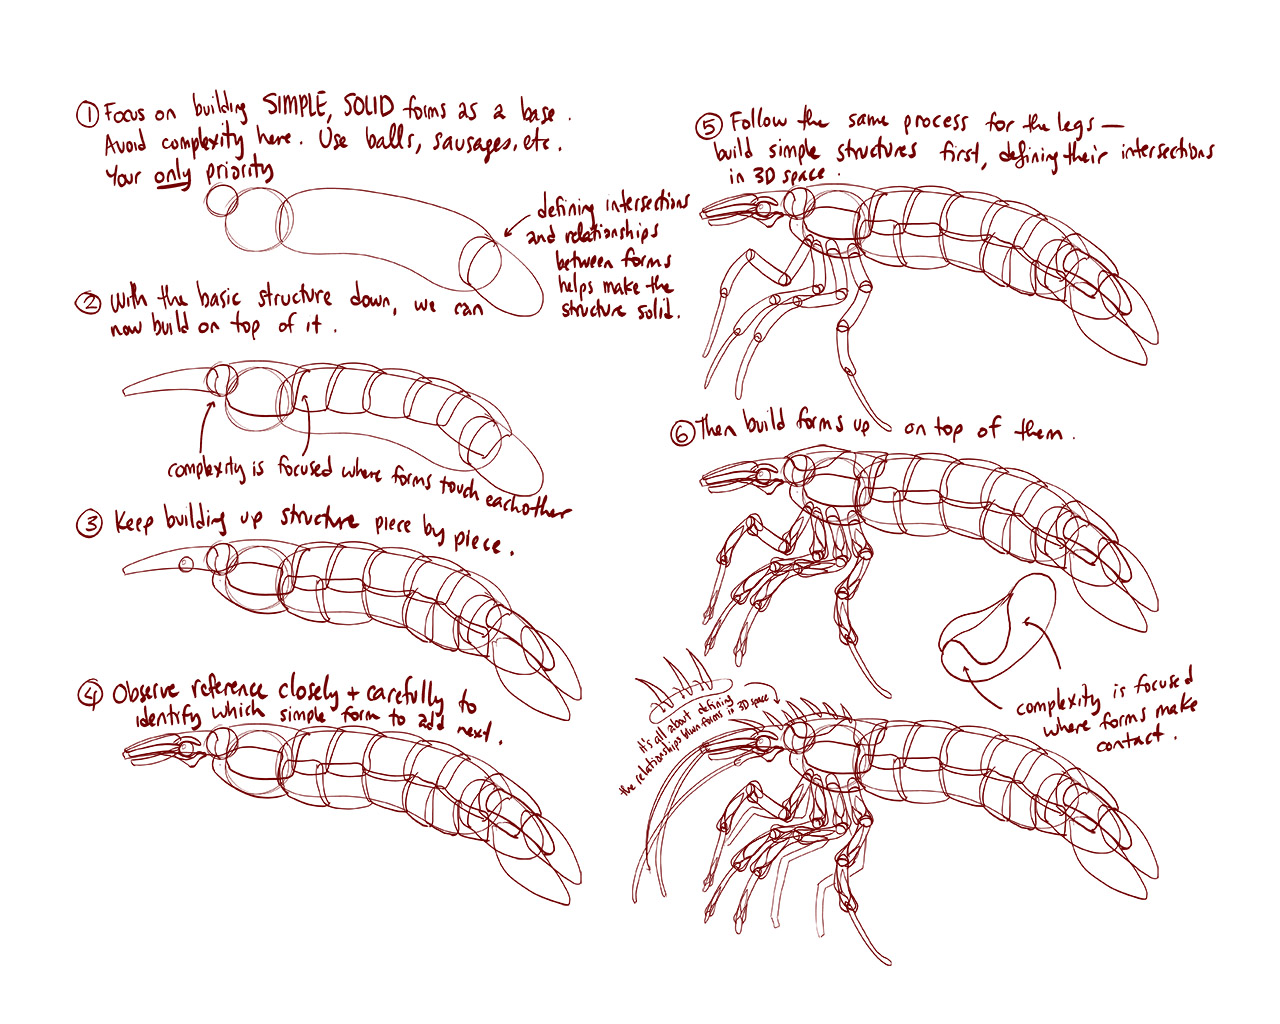 ① Focus on building SIMPLE, SOLID forms as a base.
Avoid complexity here. Use balls, sausages, etc.
Your only priority
defining intersections
and relationships
between forms
helps make the
structure solid.
② With the basic structure down, we can
now build on top of it.
complexity is focused where forms touch eachother
③ Keep building up structure piece by piece.
④ Observe reference closely + carefully to
identify which simple form to add next.
⑤ Follow the same process for the legs —
build simple structures first, defining their intersections
in 3D space.
⑥ Then build forms up on top of them.
complexity is focused
where forms make
contact.
It's all about defining
the relationships btwn forms in 3D space